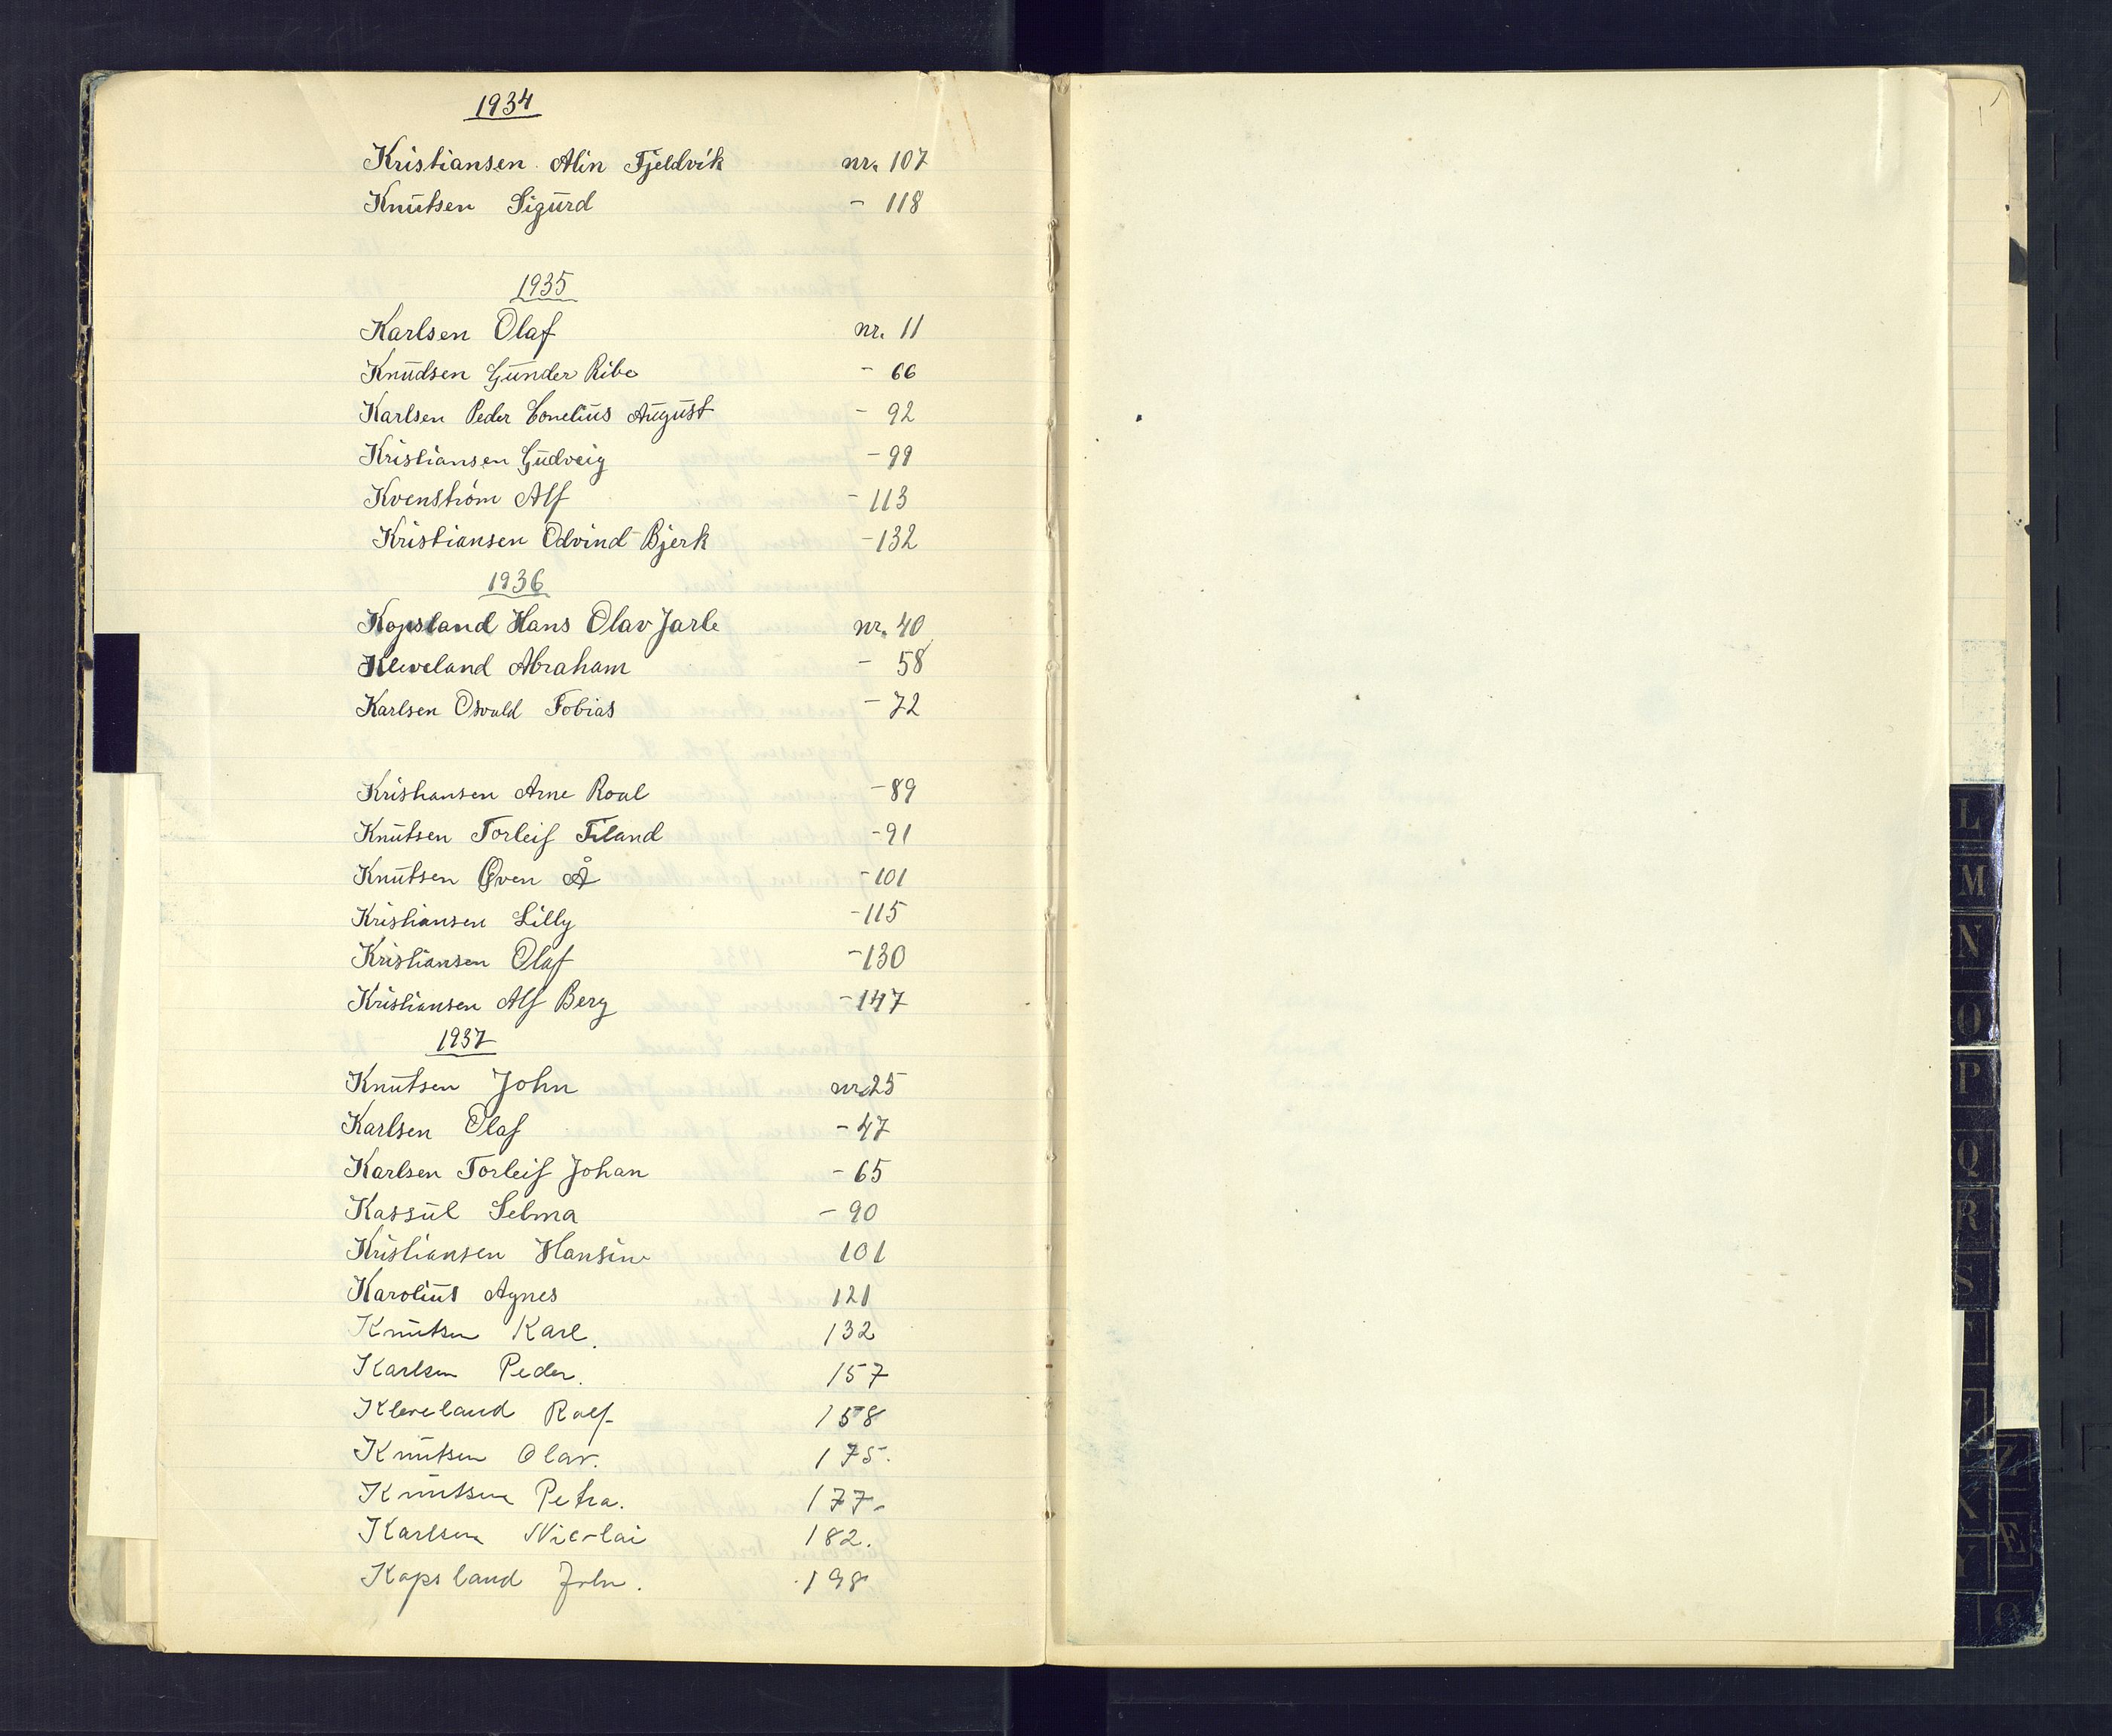 1934
Kristiansen Alin Fjeldvik nr. 107
Knutsen Sigurd - 118
1935
Karlsen Olaf nr. 11
Knudsen Gunder Ribe - 66
Karlsen Peder Conelius August - 92
Kristiansen Gudveig - 99
Kvenstrøm Alf - 113
Kristiansen Odvind Bjerk - 132
1936
Kopsland Hans Olav Jarle nr. 40
Kleveland Abraham - 58
Karlsen Osvald Tobias - 72
Kristiansen Arne Roal - 89
Knutsen Torleif Filand - 91
Knutsen Øven Å - 101
Kristiansen Lilly - 115
Kristiansen Olaf - 130
Kristiansen Alf Berg - 147
1937
Knutsen John nr. 25
Karlsen Olaf - 47
Karlsen Torleif Johan - 65
Kassul Selma - 90
Kristiansen Hansine 101
Karolius Agnes 121
Knutsen Karl. 132
Karlsen Peder. 157
Kleveland Rolf 158
Knutsen Olav. 175.
Knutsen Petra. 177.
Karlsen Nicolai 182.
Kopsland John. 198
L
M
N
O
P
Q
R
S
Z
Æ
Y
Ø